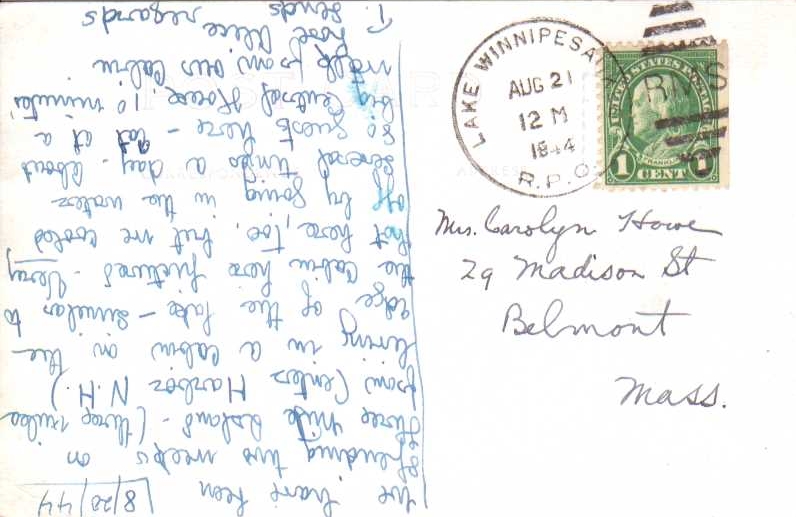 8/20/44
We have been
spending two weeks on
Three Mile Island - (three miles
from Center Harbor N.H.)
living in a cabin on the
edge of the lake - similar to
the cabin here pictured - Very
hot here, too, but we cooled
off by going in the water
several times a day - About
80 guests here - eat at a
big Central House, 10 minutes
walk from our cabin
Hope Alice
T. sends regards
LAKE WINNIPESA
AUG 21
12 M
1944
R.P.O.
RMS
UNITED STATES POSTAGE
FRANKLIN
1 CENT 1
Mrs. Carolyn Howe
29 Madison St
Belmont
Mass.